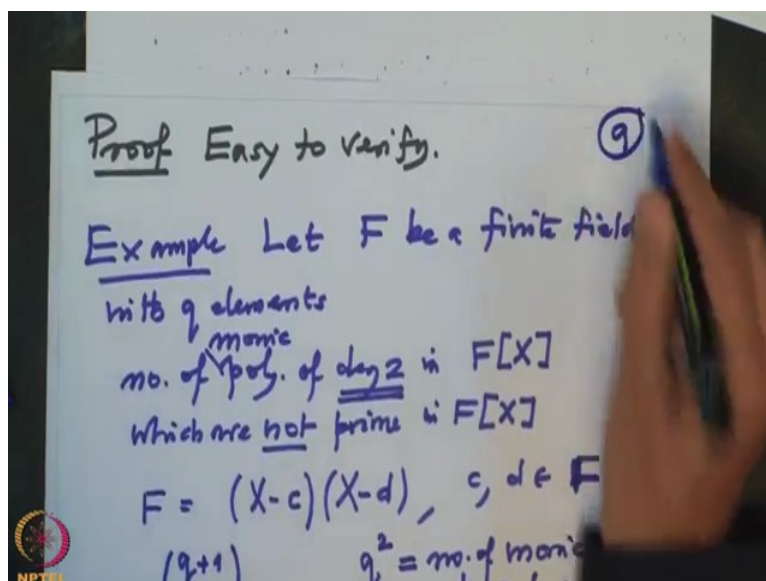 Proof Easy to verify. 9
Example Let F be a finite field
with q elements
monic
no. of poly. of deg 2 in F[X]
which are not prime in F[X]
F = (X-c)(X-d), c, d ∈ F
(q+1) q² = no. of monic
NPTEL